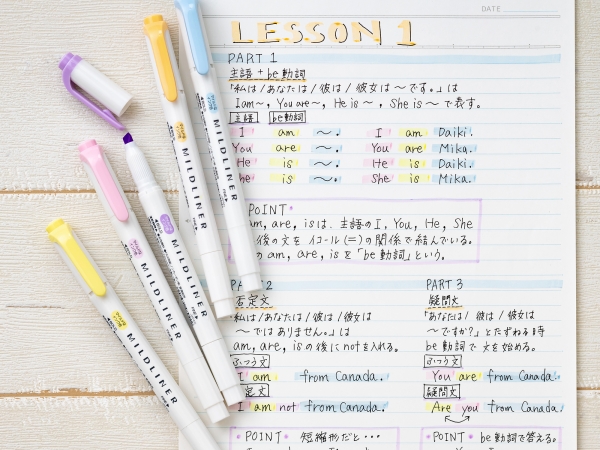 DATE
LESSON 1
PART 1
主語 + be動詞
「私は/あなたは/彼は/彼女は〜です。」は
I am〜, You are〜, He is〜, She is〜で表す。
主語 be動詞
I am 〜. I am Daiki.
You are 〜. You are Mika.
He is 〜. He is Daiki.
he is 〜. She is Mika.
POINT
am, are, is は、主語の I, You, He, She
後の文を イコール(=)の関係で結んでいる。
am, are, is を「be動詞」という。
2
否定文
「私は/あなたは/彼は/彼女は
〜ではありません。」は
am, are, is の後に not を入れる。
ふつう文
I am from Canada.
定文
I am not from Canada.
POINT 短縮形だと・・・
PART 3
疑問文
「あなたは/彼は/彼女は
〜ですか?」とたずねる時
be動詞で文を始める。
ふつう文
You are from Canada.
疑問文
Are you from Canada.
POINT be動詞で答える。
MILDLINER
MILDLINER
MILDLINER
MILDLINER
MILDLINER